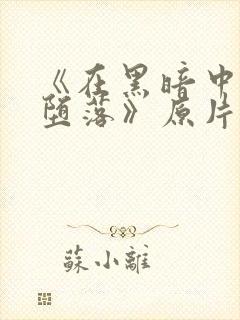 《在黑暗中
堕落》原片
蘇小離